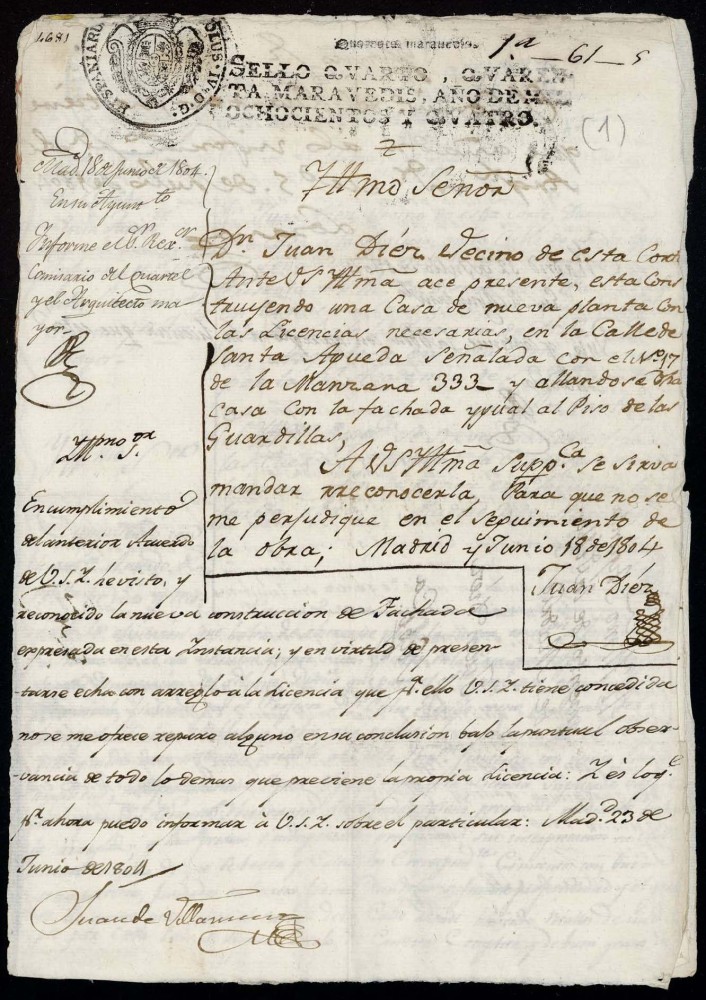 1681
HISPANIARUM
CAROLUS·IV·D·G·
Quarenta maravedis.
1ª-61-5
SELLO QVARTO, QVAREN-
TA MARAVEDIS, AÑO DE MIL
OCHOCIENTOS Y QVATRO.
(1)
Mad. 18 de Junio de 1804.
En su Ayunto
Informe el Sr. Rexor
Comisario del Quartel
y el Arquitecto ma-
yor
Yttmo Señor
Dn. Juan Díez Vecino de esta Corte
Ante VS Yttmã ace presente, esta Cons
truyendo una Casa de nueva planta Con
las Licencias necesarias, en la Calle de
Santa Agueda Señalada con el No. 17
de la Manzana 333 y allandose dha
casa Con la fachada yqual al Piso de las
Guardillas,
A VS Yttmã suppca se sirva
mandar rreconocerla, Para que no se
me perjudique en el seguimiento de
la obra; Madrid y Junio 18 de 1804
Juan Díez
Yllmo Sor.
En cumplimiento
del anterior Acuerdo
de V.S.I. he visto, y
reconocido la nueva construccion de Fachada
expresada en esta Instancia; y en virtud de presen-
tarse echa con arreglo à la Licencia que pa. ello V.S.I. tiene concedida
no se me ofrece reparo alguno en su conclusion bajo la puntual obser-
vancia de todo lo demas que previene la propia Licencia: I es lo qe.
pr. ahora puedo informar à V.S.I. sobre el particular: Madd. 23 de
Junio de 1804
Juan de Villanueva